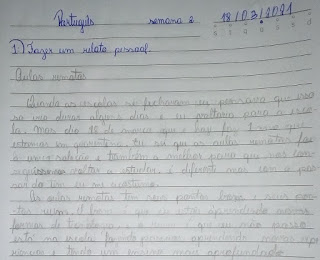 Português semana 2 18/03/2021
1) Fazer um relato pessoal.
Aulas remotas
Quando as escolas se fecharam eu pensava que isso
só iria durar alguns dias e eu voltaria para a esco
la. Mas dia 18 de março que é hoje faz 1 ano que
estamos em quarentena. Eu sei que as aulas remotas foi
a única solução e também a melhor para que nós con
a estudar, é diferente mas com o pas
sar do tempo eu me acostumo.
As aulas remotas têm seus pontos bons e seus pon
tos ruins. O bom é que eu estou aprendendo novas
formas de e o é que eu não posso
está na escola fazendo pesquisas, aprendendo novas
e tendo um ensino mais aprofundado.